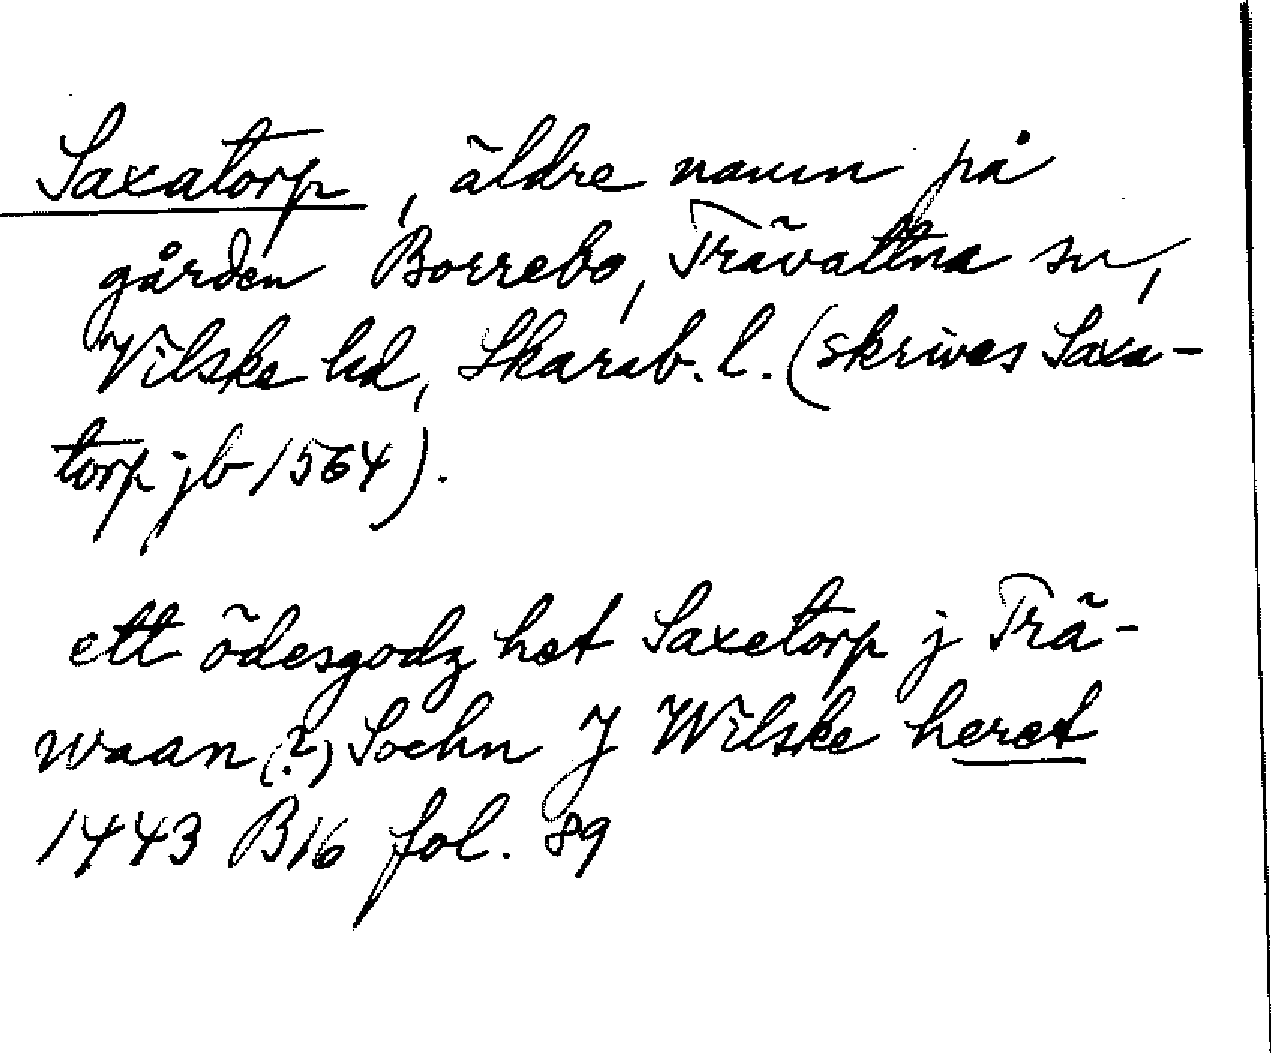 Saxatorp, äldre namn på
gården Borrebo, Trävattna sn,
Vilske hd, Skarab. l. (skrives Saxa-
torp jb 1564).
ett ödesgodz het Saxetorp j Trä-
waan (?) Sochn J Wilske heret
1443 B16 fol. 89